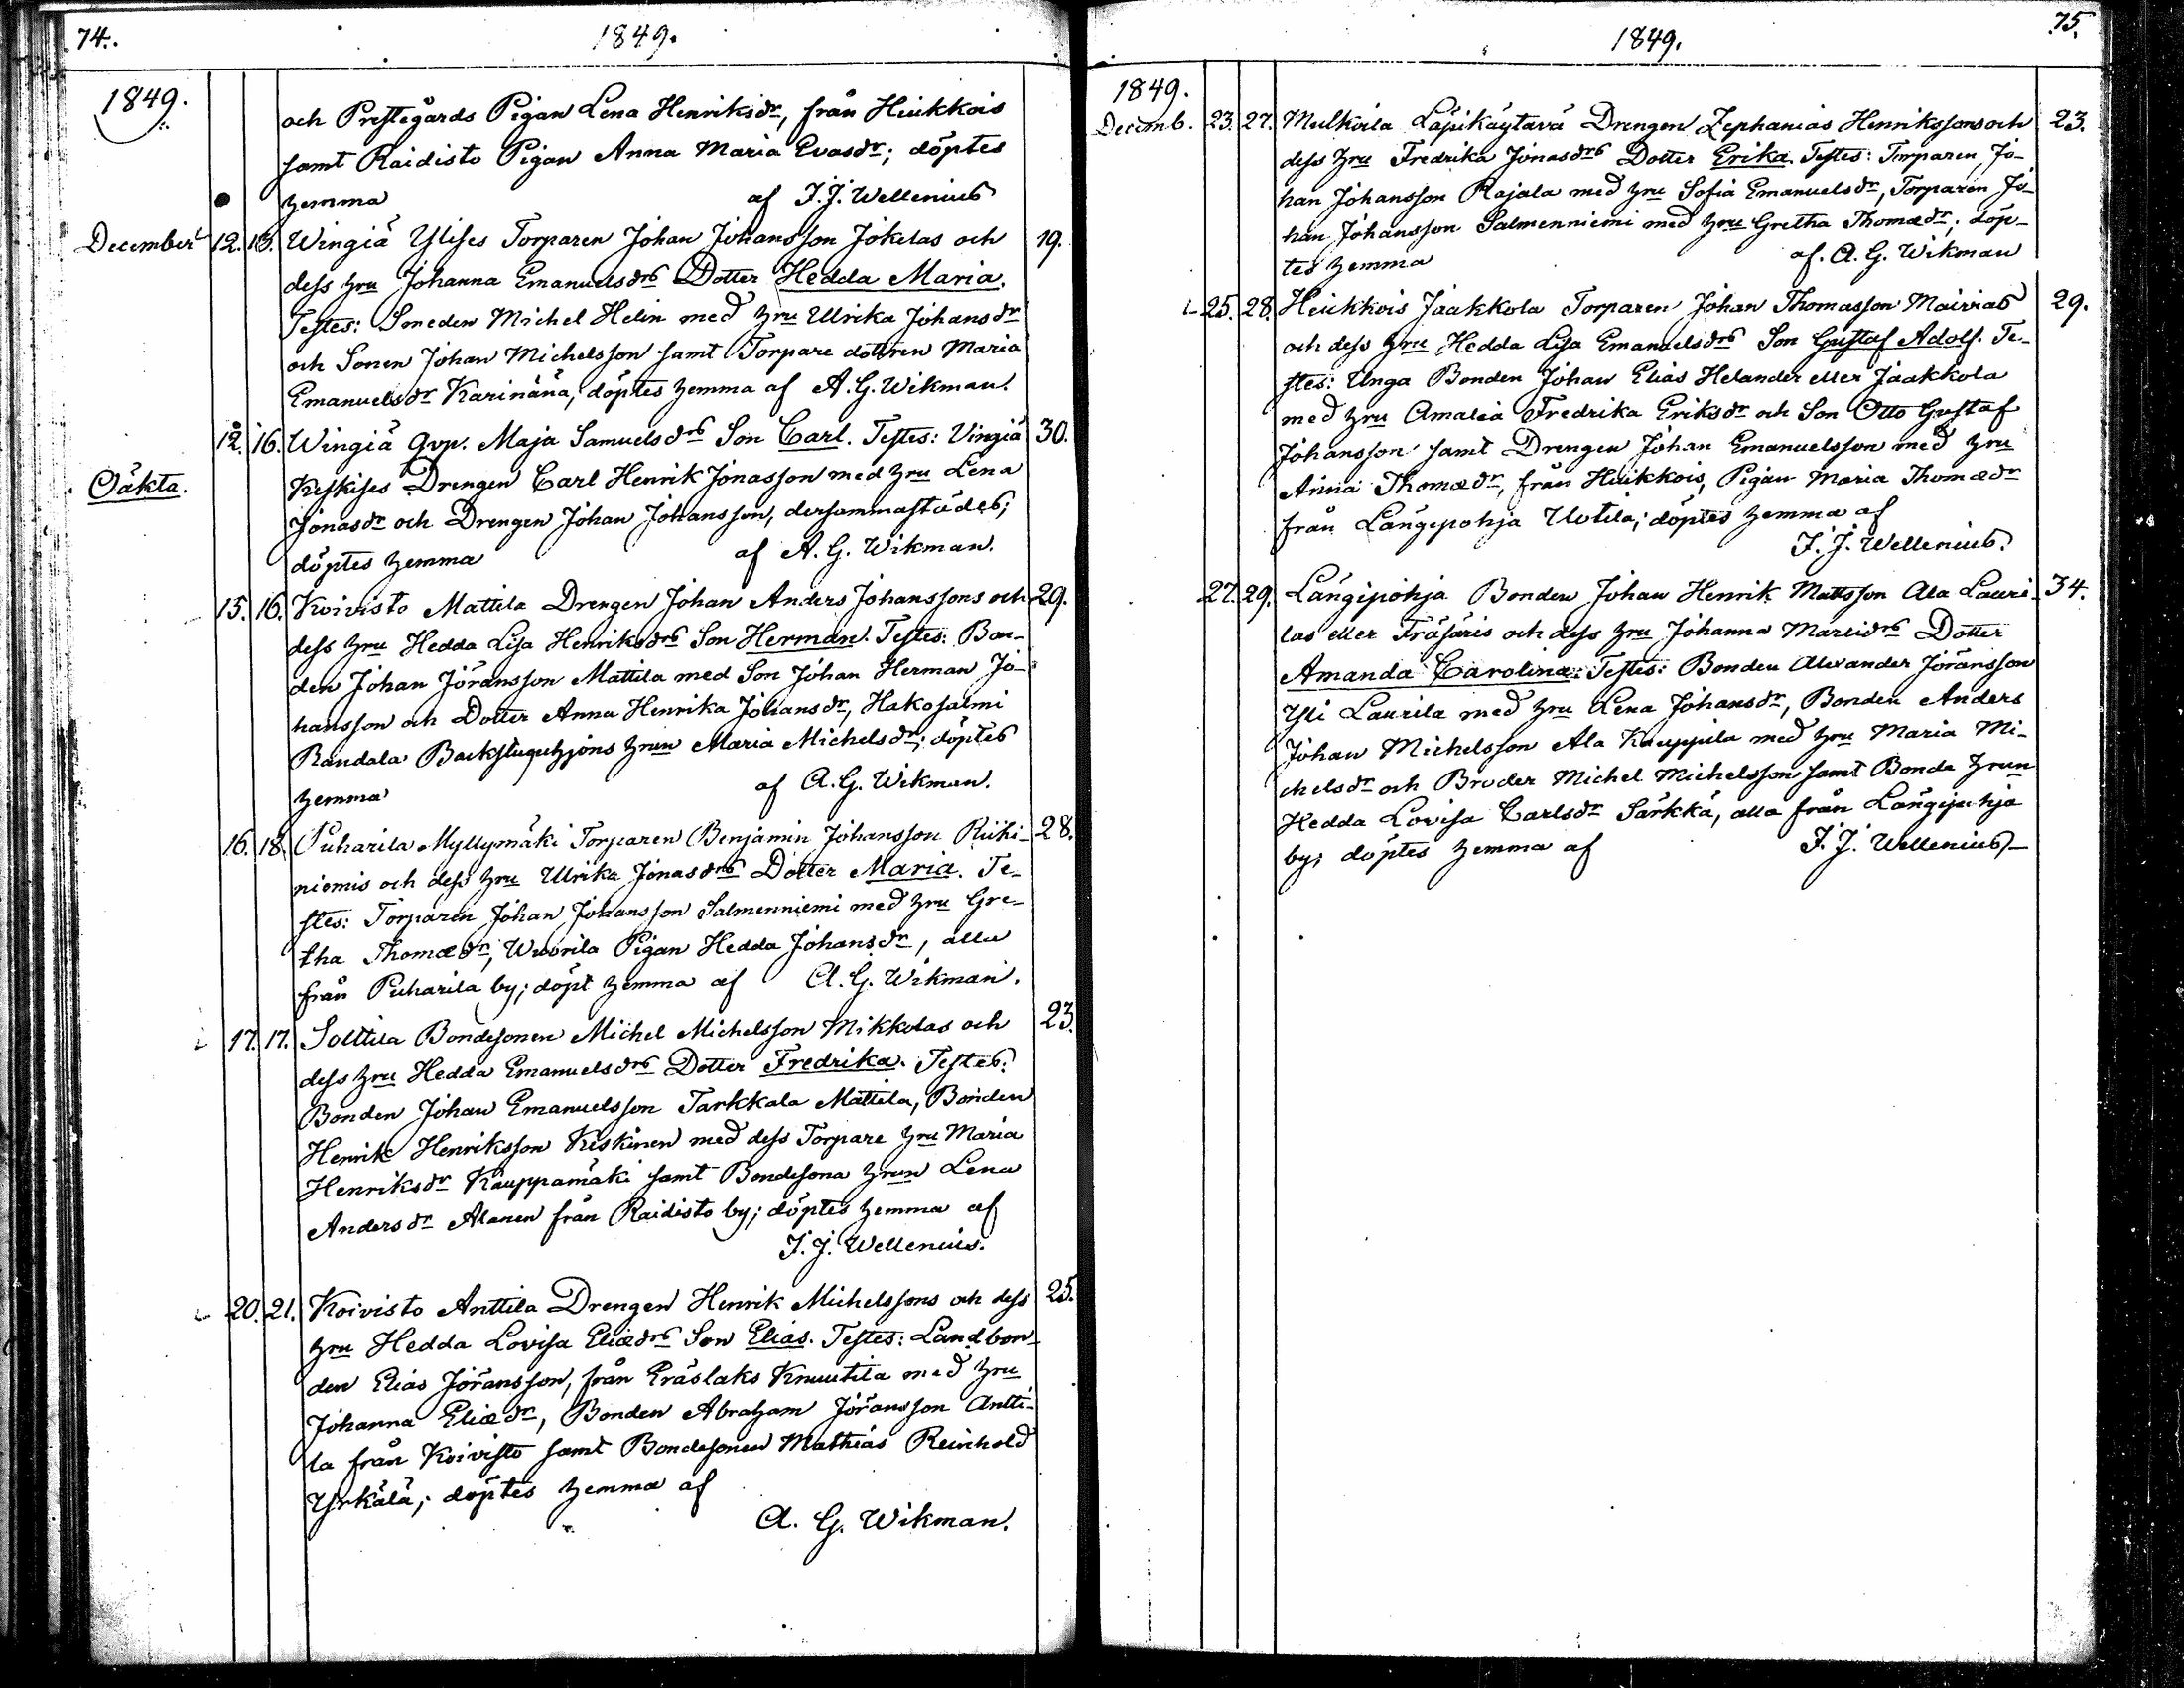 74.
1849.
1849.
och Prestegårds Pigan Lena Henriksdr, från Heikkois
samt Raidisto Pigan Anna Maria Evasdr; döptes
hemma af J. J. Wellenius
December 12. 13. Wingiä Ylises Torparen Johan Johansson Jokelas och 19.
dess hru Johanna Emanuelsdrs Dotter Hedda Maria.
Testes: Smeden Michel Helin med hru Ulrika Johansdr
och Sonen Johan Michelsson samt Torpare dottren Maria
Emanuelsdr Karinänä, döptes hemma af A. G. Wikman.
12. 16. Wingiä Qvp. Maja Samuelsdrs Son Carl. Testes: Vingiä 30.
Oäkta. Keskises Drengen Carl Henrik Jonasson med hru Lena
Jonasdr och Drengen Johan Johansson, dersammastädes;
döptes hemma af A. G. Wikman.
15. 16. Koivisto Mattila Drengen Johan Anders Johanssons och 29.
dess hru Hedda Lisa Henriksdrs Son Herman. Testes: Bon-
den Johan Jöransson Mattila med Son Johan Herman Jo-
hansson och Dotter Anna Henrika Johansdr, Hakosalmi
Randala Backstuguhjons hrun Maria Michelsdr; döptes
hemma af A. G. Wikman.
16. 18. Puharila Myllymäki Torparen Benjamin Johansson Riihi- 28.
niemis och dess hru Ulrika Jonasdrs Dotter Maria. Te-
stes: Torparen Johan Johansson Salmenniemi med hru Gre-
tha Thomædr, Wuorila Pigan Hedda Johansdr, alla
från Puharila by; döpt hemma af A. G. Wikman.
17. 17. Solttila Bondesonen Michel Michelsson Mikkolas och 23.
dess hru Hedda Emanuelsdrs Dotter Fredrika. Testes:
Bonden Johan Emanuelsson Tarkkala Mattila, Bonden
Henrik Henriksson Keskinen med dess Torpare hru Maria
Henriksdr Kauppamäki samt Bondesona hrun Lena
Andersdr Alanen från Raidisto by; döptes hemma af
J. J. Wellenius.
20. 21. Koivisto Anttila Drengen Henrik Michelssons och dess 25.
hru Hedda Lovisa Eliædrs Son Elias. Testes: Landbon-
den Elias Jöransson, från Eräslaks Knuutila med hru
Johanna Eliædr, Bonden Abraham Jöransson Antti-
la från Koivisto samt Bondesonen Mathias Reinhold
Yrkälä; döptes hemma af
A. G. Wikman.
75.
1849.
1849.
Decemb. 23. 27. Mulkoila Läpikäytävä Drengen Zephanias Henrikssons och 23.
dess hru Fredrika Jonasdrs Dotter Erika. Testes: Torparen Jo-
han Johansson Rajala med hru Sofia Emanuelsdr, Torparen Jo-
han Johansson Salmenniemi med hru Gretha Thomædr; döp-
tes hemma af. A. G. Wikman
25. 28. Heikkois Jaakkola Torparen Johan Thomasson Maivias 29.
och dess hru Hedda Lisa Emanuelsdrs Son Gustaf Adolf. Te-
stes: Unga Bonden Johan Elias Helander eller Jaakkola
med hru Amalia Fredrika Eriksdr och Son Otto Gustaf
Johansson samt Drengen Johan Emanuelsson med hru
Anna Thomædr, från Heikkois, Pigan Maria Thomædr
från Längepohja Uotila; döptes hemma af
J. J. Wellenius.
27. 29. Längipohja Bonden Johan Henrik Mattsson Ala Lauri- 34.
las eller Fräsäris och dess hru Johanna Martidrs Dotter
Amanda Carolina: Testes: Bonden Alexander Jöransson
Yli Laurila med hru Lena Johansdr, Bonden Anders
Johan Michelsson Ala Kauppila med hru Maria Mi-
chelsdr och Broder Michel Michelsson samt Bonde hrun
Hedda Lovisa Carlsdr Särkkä, alla från Längipohja
by; döptes hemma af J. J. Wellenius